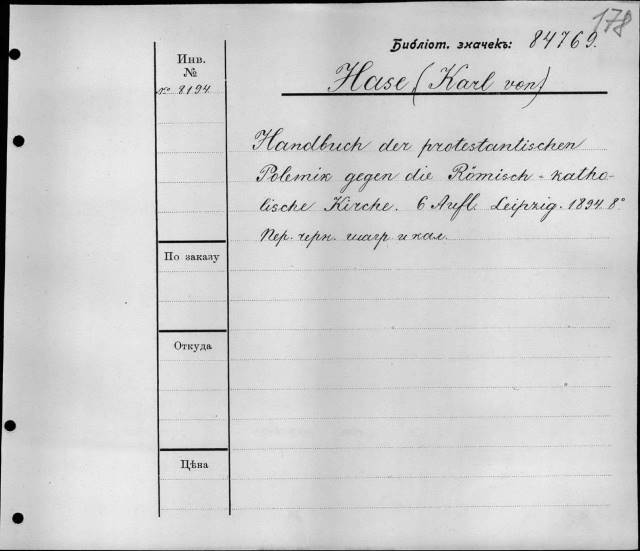 178
Библіот. значекъ: 84769.
Инв.
№
№ 8194
Hase (Karl von)
Handbuch der protestantischen
Polemik gegen die Römisch-katho-
lische Kirche. 6 Aufl. Leipzig. 1894. 8°
Пер. черн. шагр. и кал.
По заказу
Откуда
Цѣна